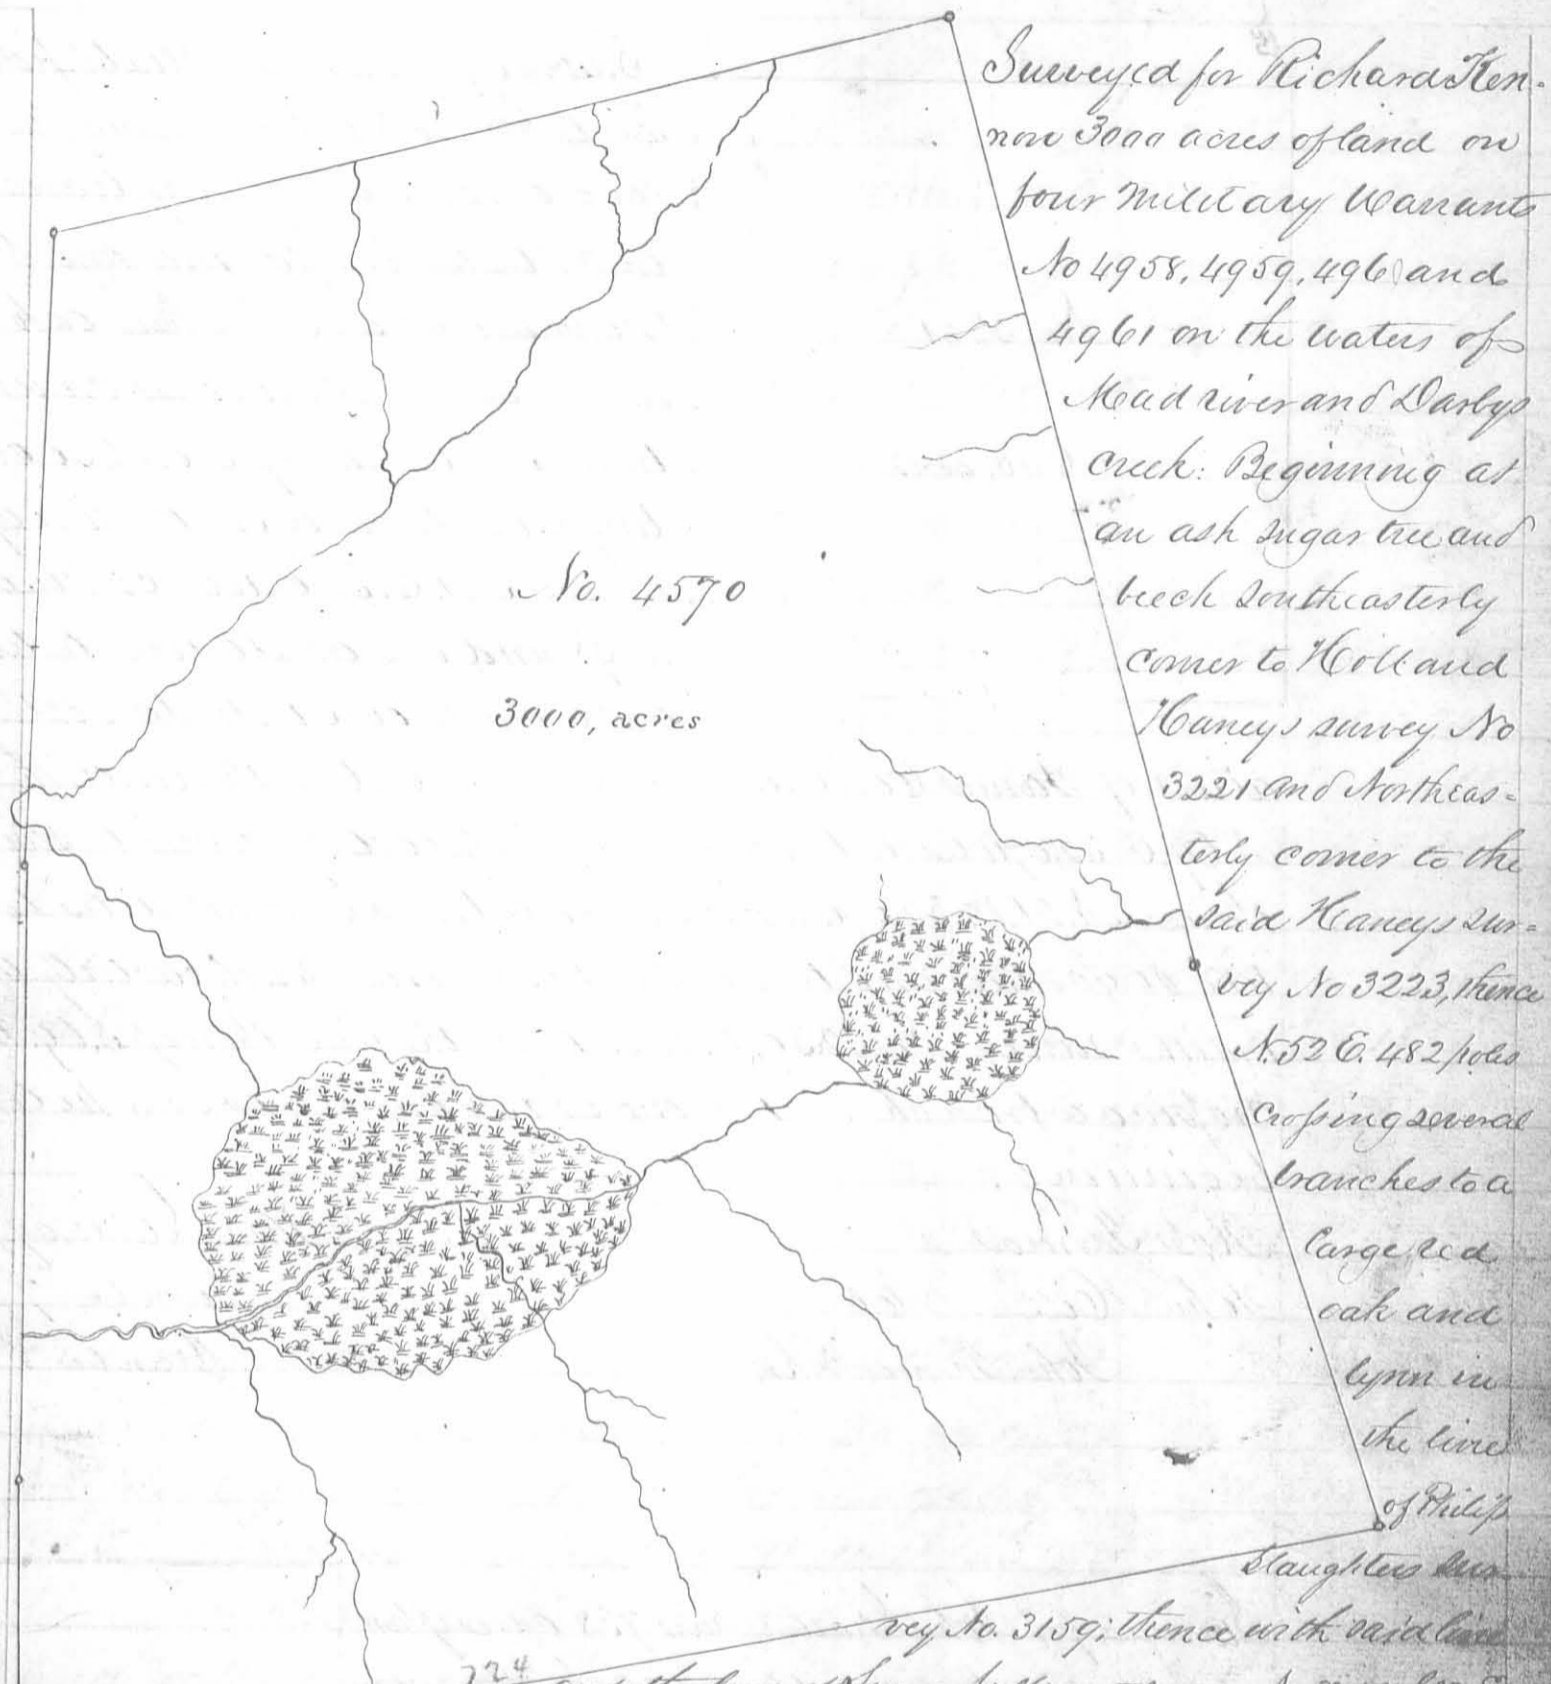 Surveyed for Richard Ken-
non 3000 acres of land on
four Military Warrants
No 4958, 4959, 496 and
4961 on the waters of
Mad river and Darbys
creek: Beginning at
an ash sugar tree and
beech southeasterly
corner to Holland
Haneys survey No
3221 and Northeas=
terly corner to the
said Haneys sur=
vey No 3223, thence
N. 52 E. 482 poles
crossing several
branches to a
large red
oak and
lynn in
the line
of Philip
Slaughters sur
vey No. 3159; thence with said line
No. 4570
3000, acres
224